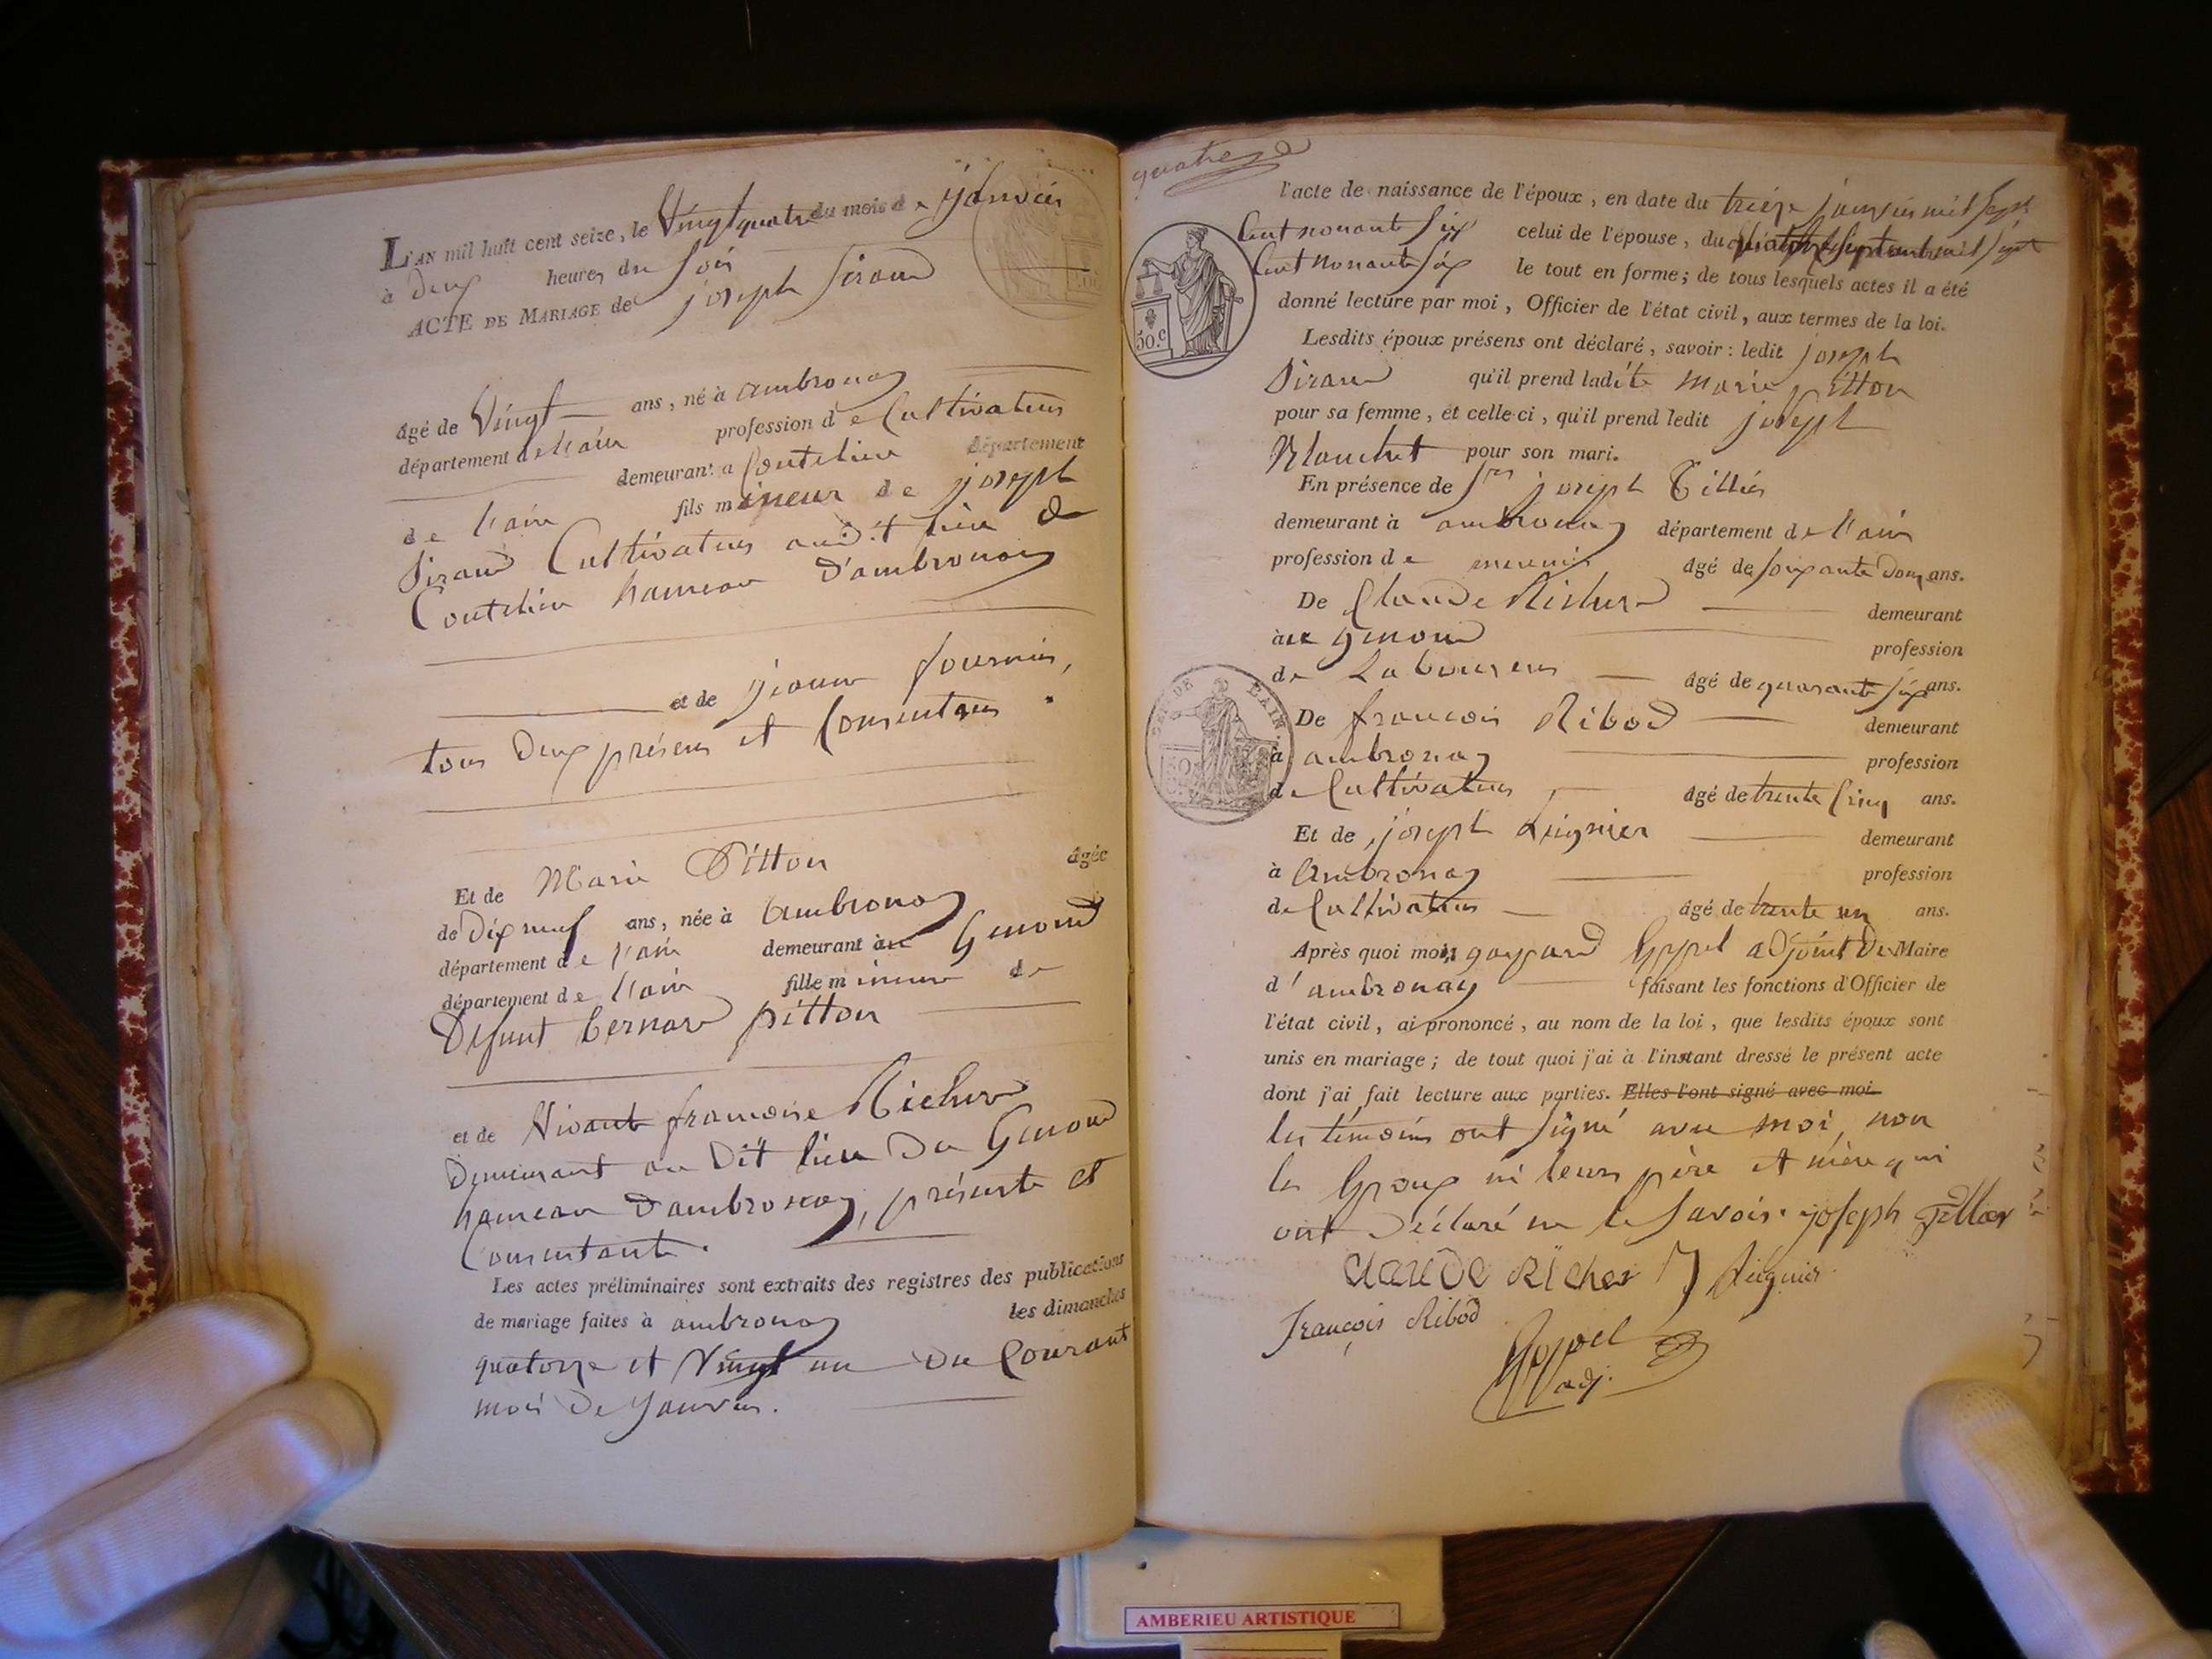 L'AN mil huit cent seize, le Vingt quatre du mois de janvier
à deux heures du soir
ACTE DE MARIAGE de joseph Siraud
âgé de Vingt ans, né à ambronay
département de l'ain profession de Cultivateur
demeurant a Coutelieu département
de l'ain fils mineur de joseph
Siraud Cultivateur audit lieu de
Coutelieu hameau d'ambronay
et de jeanne fournier,
tous deux présens et Consentans.
Et de Marie Pitton âgée
de dix neuf ans, née à ambronay
département de l'ain demeurant au Genoud
département de l'ain fille mineure de
Defunt bernard pitton
et de Vivante francoise Richerd
demeurant au dit lieu du Genoud
hameau d'ambronay, présente et
Consentante.
Les actes préliminaires sont extraits des registres des publications
de mariage faites à ambronay les dimanches
quatorze et Vingt un du Courant
mois de janvier.
quatre
l'acte de naissance de l'époux, en date du treize janvier mil sept
Cent nonante six celui de l'épouse, du septembre mil sept
Cent nonante six le tout en forme; de tous lesquels actes il a été
donné lecture par moi, Officier de l'état civil, aux termes de la loi.
50.c
Lesdits époux présens ont déclaré, savoir: ledit joseph
Siraud qu'il prend ladite marie pitton
pour sa femme, et celle-ci, qu'il prend ledit joseph
Blanchet pour son mari.
En présence de Srs joseph Tillier
demeurant à ambronay département de l'ain
profession de âgé de soixante douze ans.
De Claude Richerd demeurant
au genoud profession
de Laboureur âgé de quarante six ans.
De francois Ribod demeurant
à ambronay profession
de Cultivateur âgé de trente Cinq ans.
Et de joseph Reignier demeurant
à Ambronay profession
de Cultivateur âgé de trente un ans.
Après quoi moi, gaspard adjoint de Maire
d'ambronay faisant les fonctions d'Officier de
l'état civil, ai prononcé, au nom de la loi, que lesdits époux sont
unis en mariage; de tout quoi j'ai à l'instant dressé le présent acte
dont j'ai fait lecture aux parties. Elles l'ont signé avec moi
les témoins ont signé avec moi, non
les Epoux ni leurs père et mère qui
ont déclaré ne le savoir. joseph
CLAUDE Richer J Reignier
François Ribod
adj.
AMBERIEU ARTISTIQUE